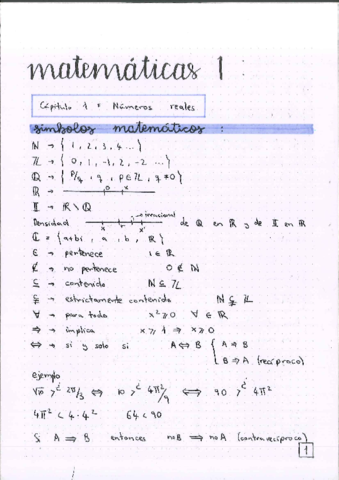 matemáticas 1 :
Cápitulo 1 : Números reales
símbolos matemáticos :
ℕ → { 1, 2, 3, 4 ... }
ℤ → { 0, 1, -1, 2, -2 ... }
ℚ → { P/q , q , p ∈ ℤ, q ≠ 0 }
ℝ → 0 x
𝕀 → ℝ \ ℚ
Densidad x x' → irracional de ℚ en ℝ y de 𝕀 en ℝ
ℂ = { a+bi , a , b , ℝ }
∈ → pertenece 1 ∈ ℝ
∉ → no pertenece 0 ∉ ℕ
⊆ → contenido ℕ ⊆ ℤ
⊊ → estrictamente contenido ℕ ⊊ ℤ
∀ → para todo x² ≥ 0 ∀ ∈ ℝ
⇒ → implica x ≥ 1 ⇒ x ≥ 0
⇔ → si y solo si A ⇔ B { A ⇒ B
B ⇒ A (recíproco)
ejemplo
√10 >¿ 2π/3 ⇔ 10 >¿ 4π²/9 ⇔ 90 >¿ 4π²
4π² < 4 · 4² 64 < 90
Si A ⇒ B entonces no B ⇒ no A (contrarecíproco)
1